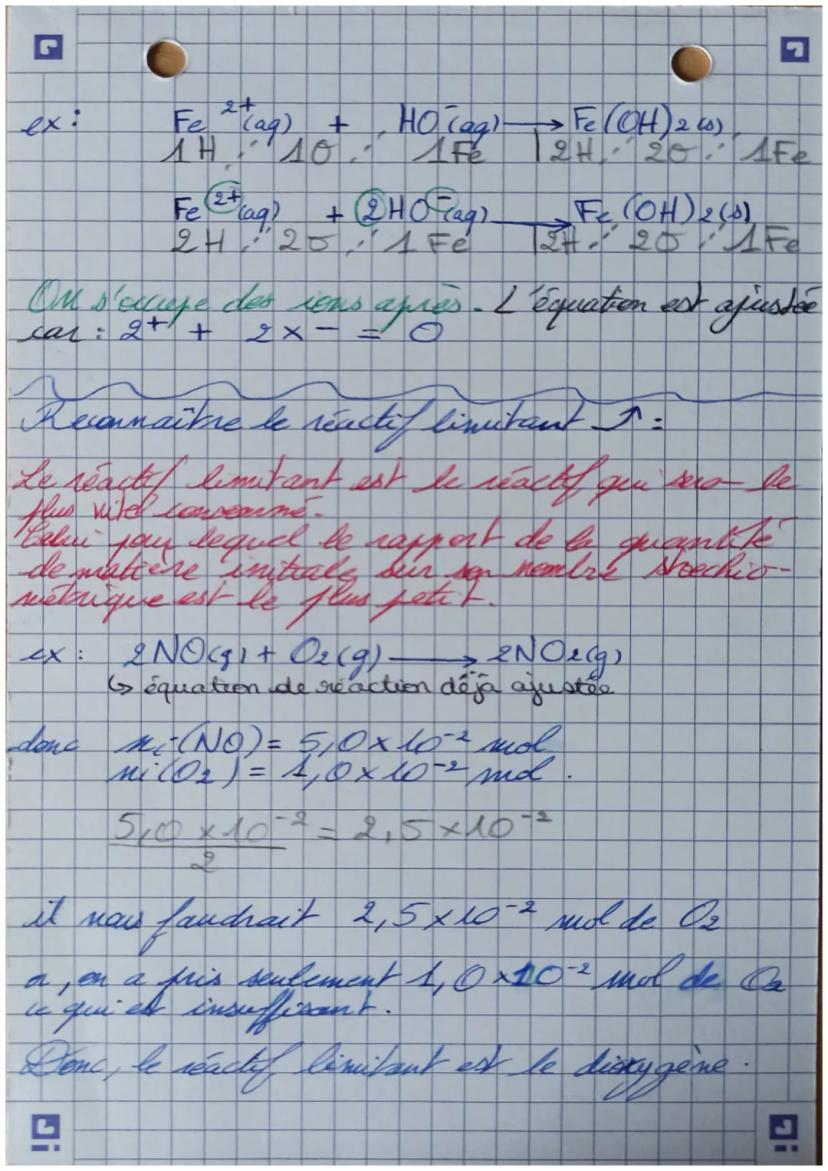 ex: Fe²⁺(aq) + HO⁻(aq) ⟶ Fe(OH)₂(s)
1H ∴ 1O ∴ 1Fe | 2H ∴ 2O ∴ 1Fe
Fe²⁺(aq) + 2HO⁻(aq) ⟶ Fe(OH)₂(s)
2H ∴ 2O ∴ 1Fe | 2H ∴ 2O ∴ 1Fe
On s'occupe des ions après. L'équation est ajustée
car : 2⁺ + 2 x − = 0
Reconnaître le réactif limitant ⤴ :
Le réactif limitant est le réactif qui sera le
plus vite consommé.
Celui pour lequel le rapport de la quantité
de matière initiale sur son nombre stoechio-
métrique est le plus petit.
ex : 2NO(g) + O₂(g) ⟶ 2NO₂(g)
↳ équation de réaction déjà ajustée
donc ni(NO) = 5,0 x 10⁻² mol
ni(O₂) = 1,0 x 10⁻² mol.
5,0 x 10⁻² = 2,5 x 10⁻²
2
il nous faudrait 2,5 x 10⁻² mol de O₂
or, on a pris seulement 1,0 x 10⁻² mol de O₂
ce qui est insuffisant.
Donc, le réactif limitant est le dioxygène.